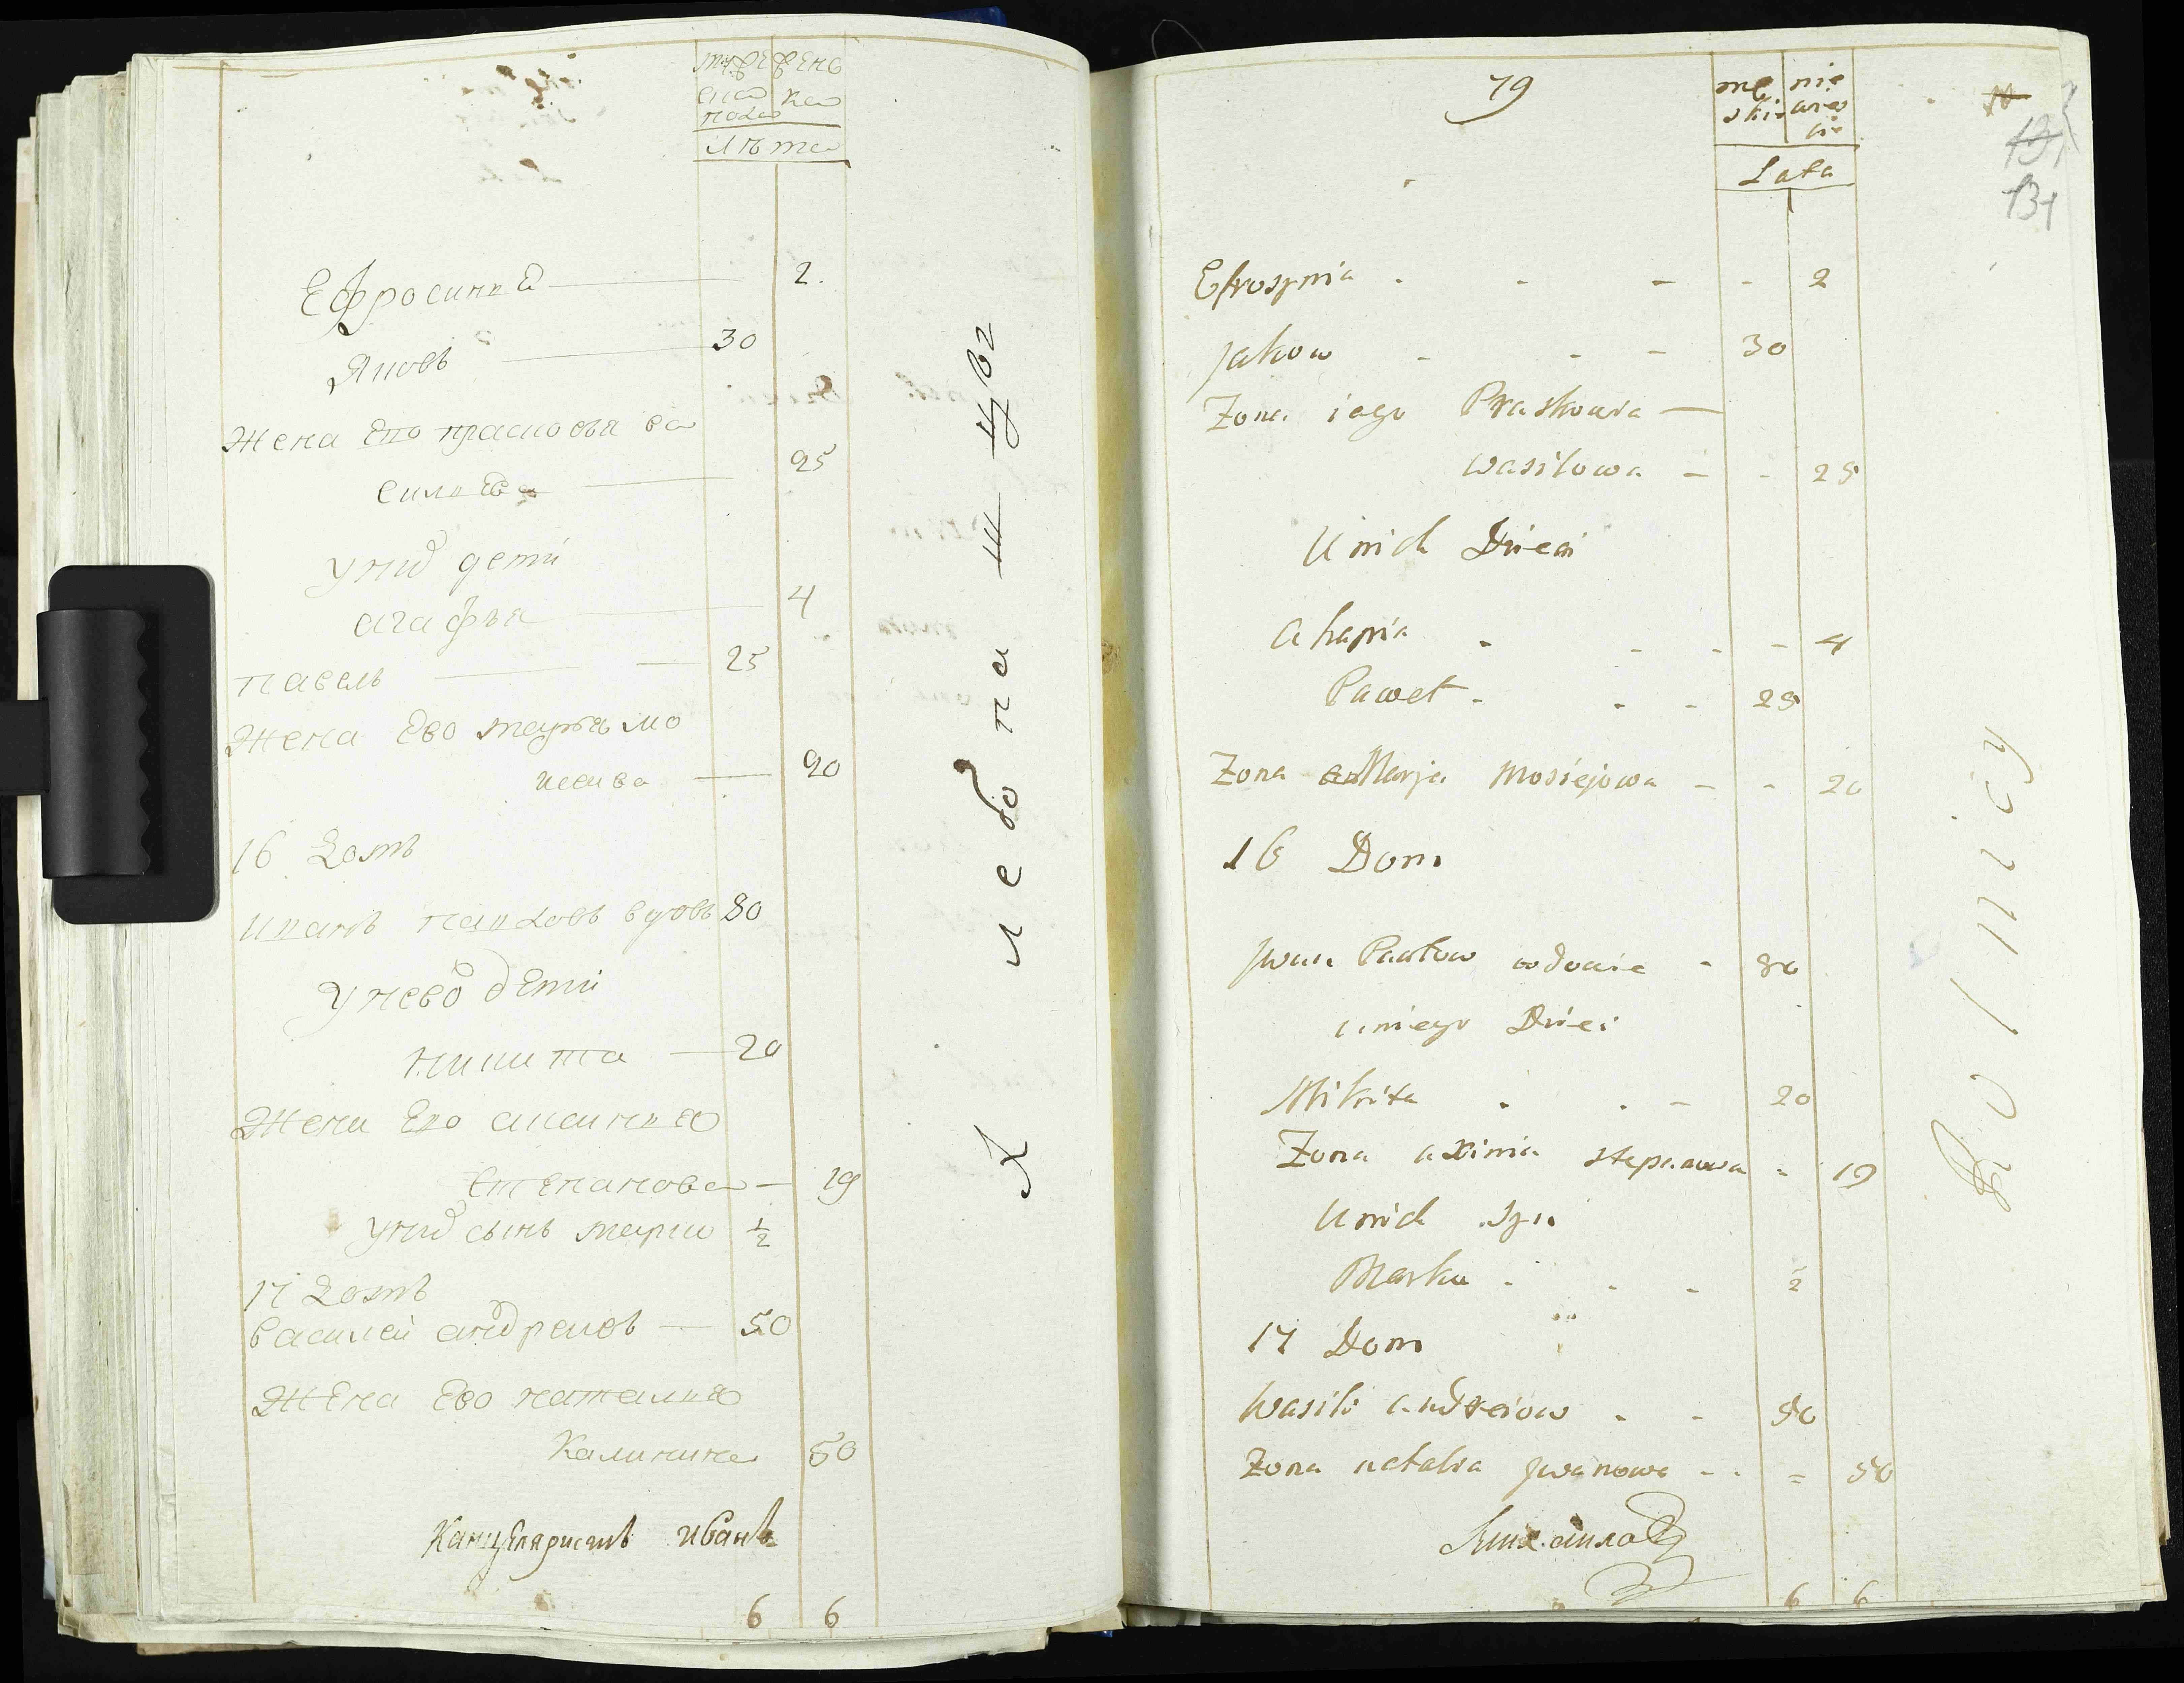 мужеска пола
женска
лѣта
Ефросиния 2.
Яковъ 30
Жена Ево прасковья ва
силиева 25
У них дети
агафья 4
павелъ 25
Жена Ево марья мо
исеива 20
16 Домъ
Иванъ павловъ вдовъ 80
У нево дети
никита 20
Жена Ево аксиния
степанова 19
У них сынъ марко 1/2
17 Домъ
василей андреивъ 50
Жена Ево наталия
Калинина 50
Канцеляристъ Иванъ
6 6
Хлебопашцы
79
męskie
niewieście
Lata
131
Efrosynia 2
Jakow 30
Zona iego Praskowia
wasilowa 25
U nich Dzieci
Ahapia 4
Paweł 25
Zona Marja Mosiejowa 20
16 Dom
Jwan Pawłow wdowie 80
u niego Dzieci
Mikita 20
Zona axinia stepanowa 19
U nich syn
Marko ½
17 Dom
Wasili andreiow 50
Zona natalia Jwanowa 50
6 6
Rolnicy